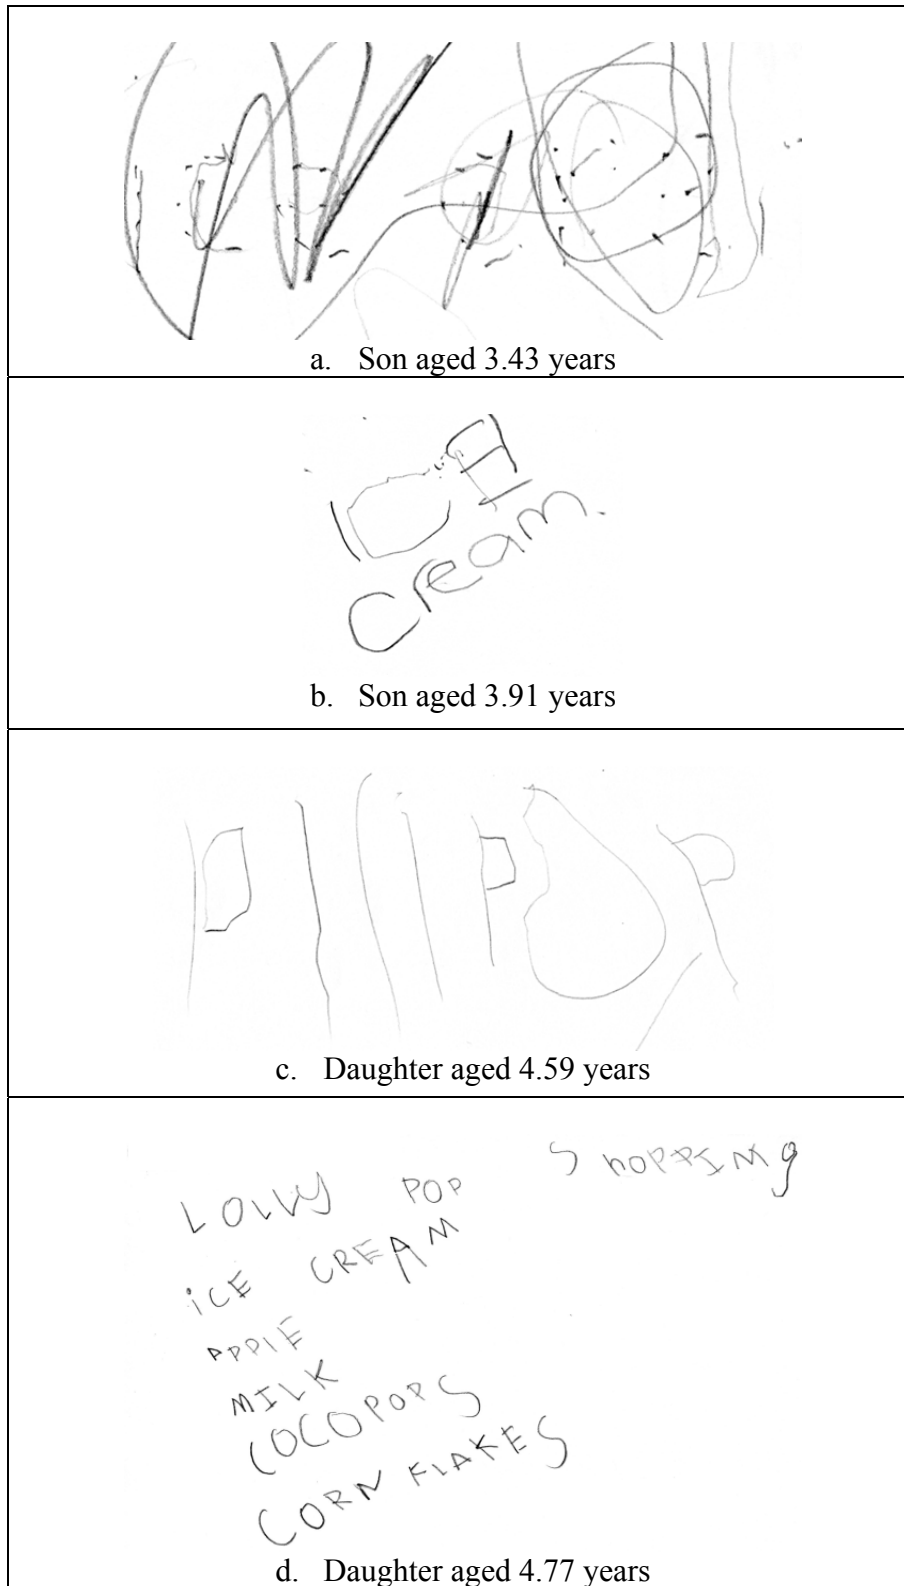 a. Son aged 3.43 years
Cream
b. Son aged 3.91 years
c. Daughter aged 4.59 years
SHOPPING
LOLLY POP
iCE CREAM
APPlE
MILK
COCOPOPS
CORN FLAKES
d. Daughter aged 4.77 years